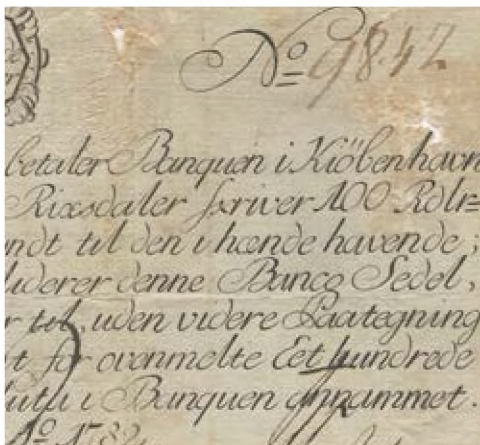 No 9842
betaler Banquen i Kiöbenhavn
Rixsdaler skriver 100 Rdlr=
ndt til den i hænde havende;
liderer denne Banco Sedel,
r til, uden videre Paategning
t for ovenmelte Eet hundrede
luta i Banquen annammet.
Ao 1732,